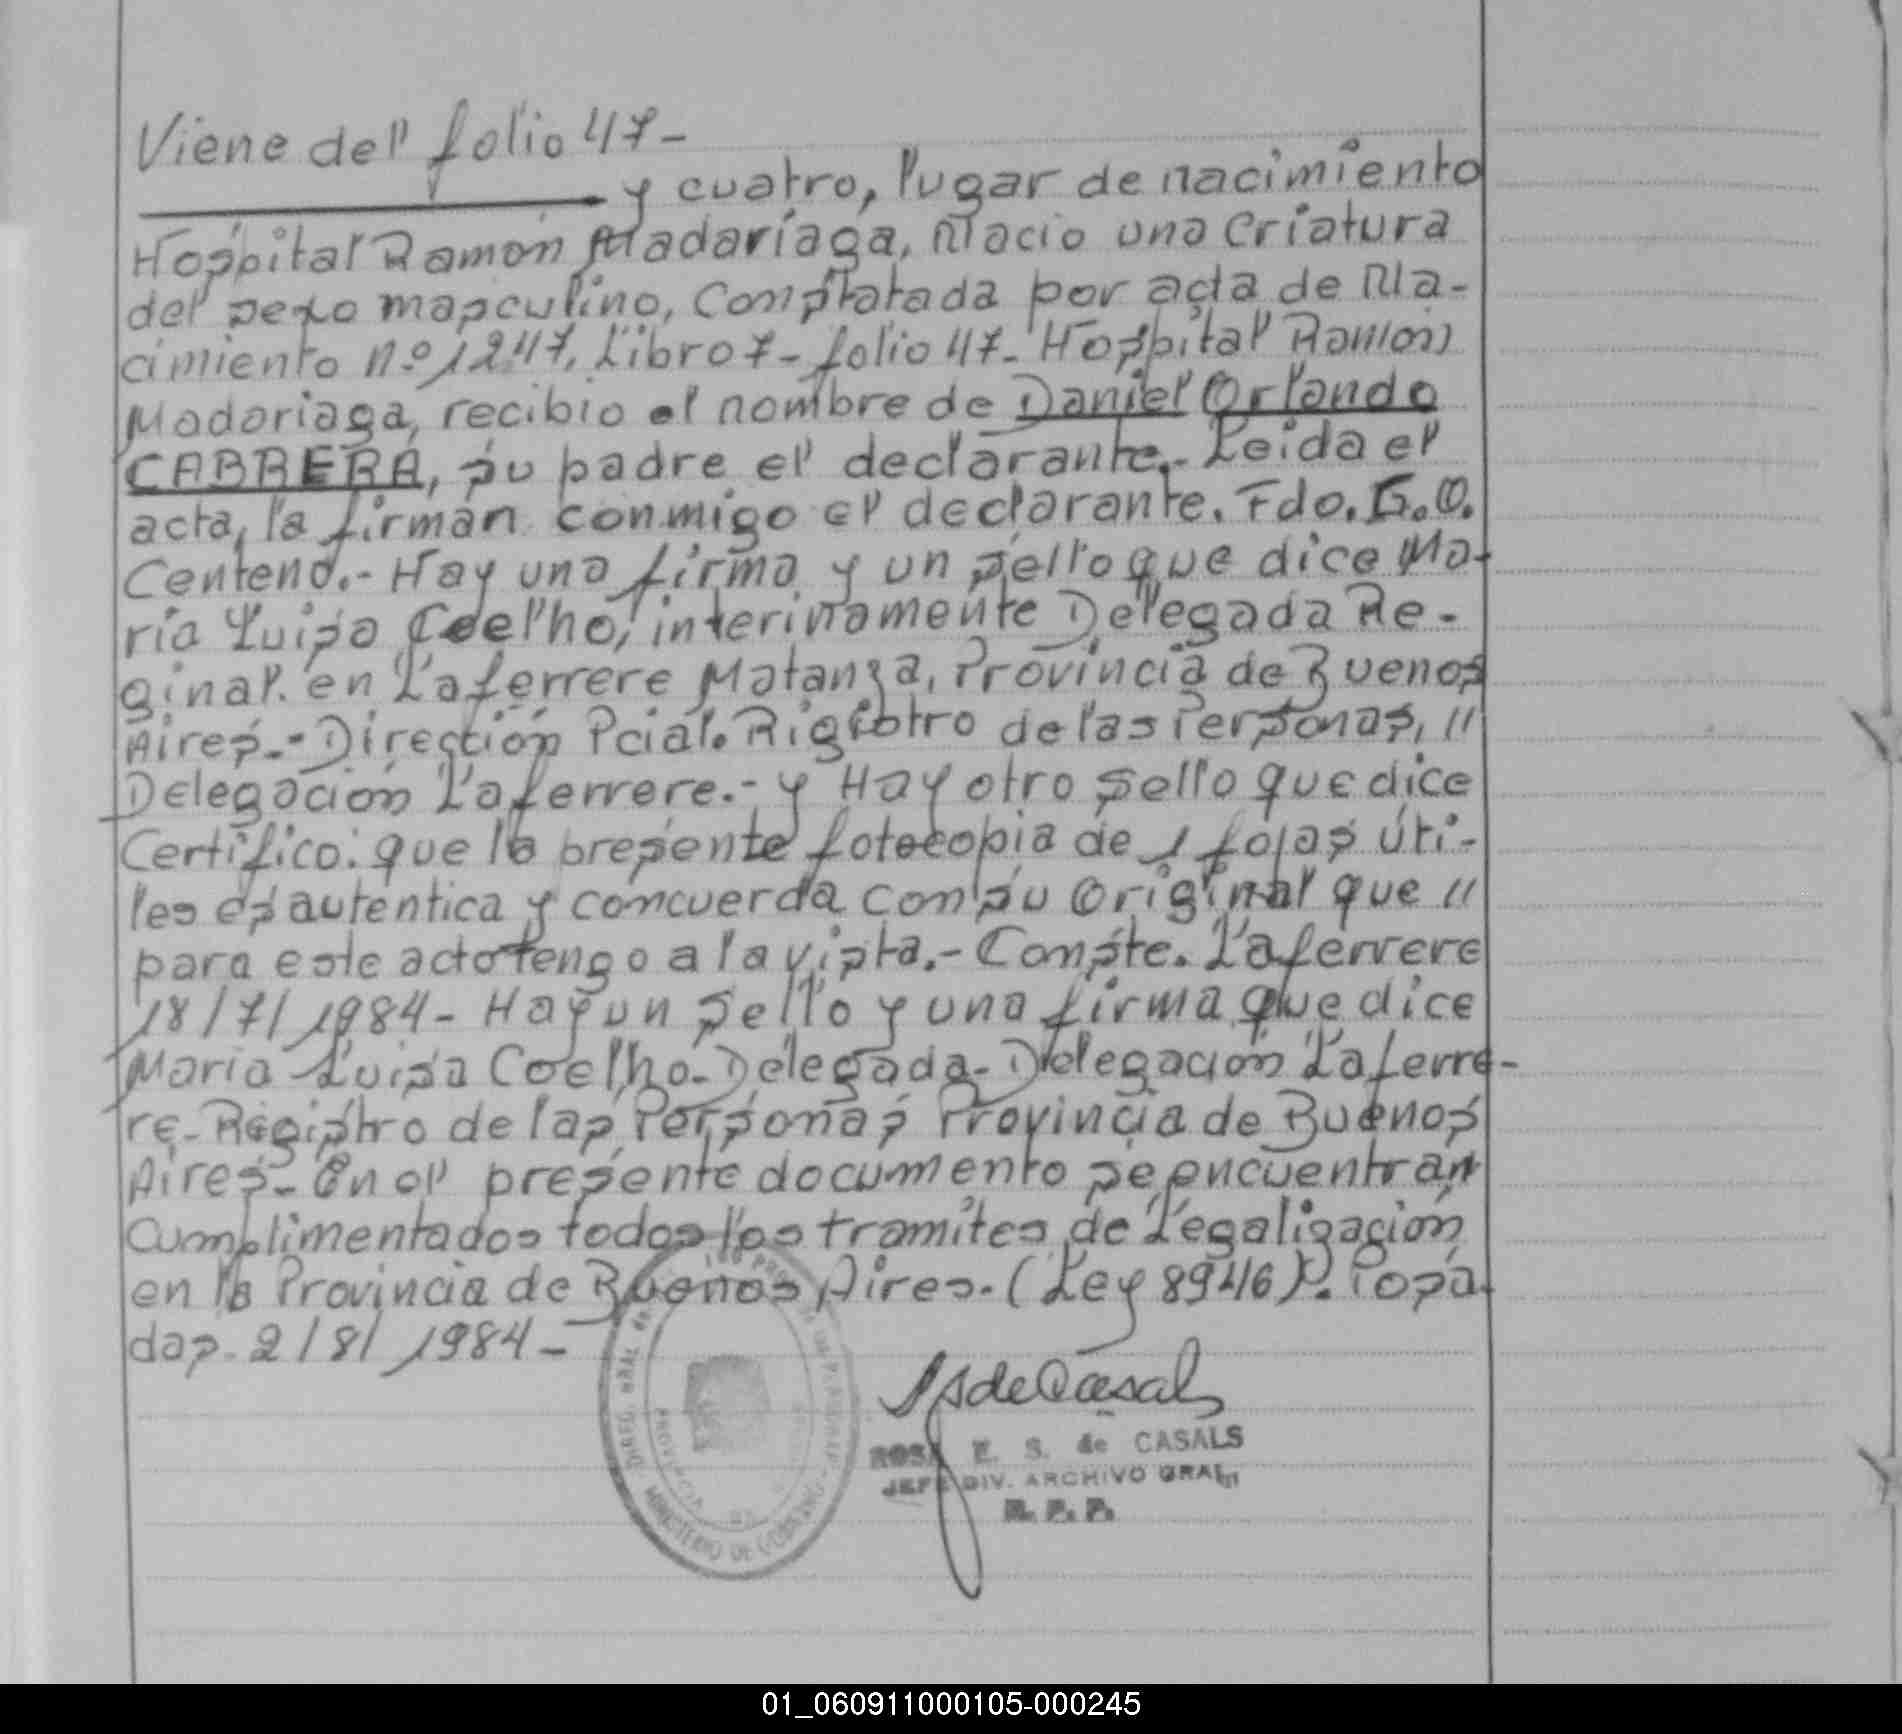 Viene del folio 47-
y cuatro, lugar de nacimiento
Hospital Ramón Madariaga, Nacio una Criatura
del sexo masculino, Constatada por acta de Na-
cimiento nº 1247, Libro 7- folio 47- Hospital Ramón
Madariaga, recibio el nombre de Daniel Orlando
CABRERA, su padre el declarante.- Leida el
acta, la firman conmigo el declarante. Fdo. G.O.
Centeno.- Hay una firma y un sello que dice Ma-
ria Luisa Coelho, interinamente Delegada Re-
ginal. en Laferrere Matanza, Provincia de Buenos
Aires.- Dirección Pcial. Registro de las Personas, //
Delegación Laferrere.- y Hay otro sello que dice
Certifico: que la presente fotocopia de 1 fojas úti-
les es autentica y concuerda con su original que //
para este acto tengo a la vista.- Conste. Laferrere
18/7/1984- Hay un sello y una firma que dice
Maria Luisa Coelho- Delegada- Delegación Laferre-
re- Registro de las Personas Provincia de Buenos
Aires- En el presente documento se encuentran
cumplimentados todos los tramites de Legalización
en la Provincia de Buenos Aires. (Ley 8946). Posa-
das- 2/8/1984-
ROSA E. S. de CASALS
JEFE DIV. ARCHIVO GRAL
R. P. P.
MINISTERIO DE GOBIERNO
01_060911000105-000245